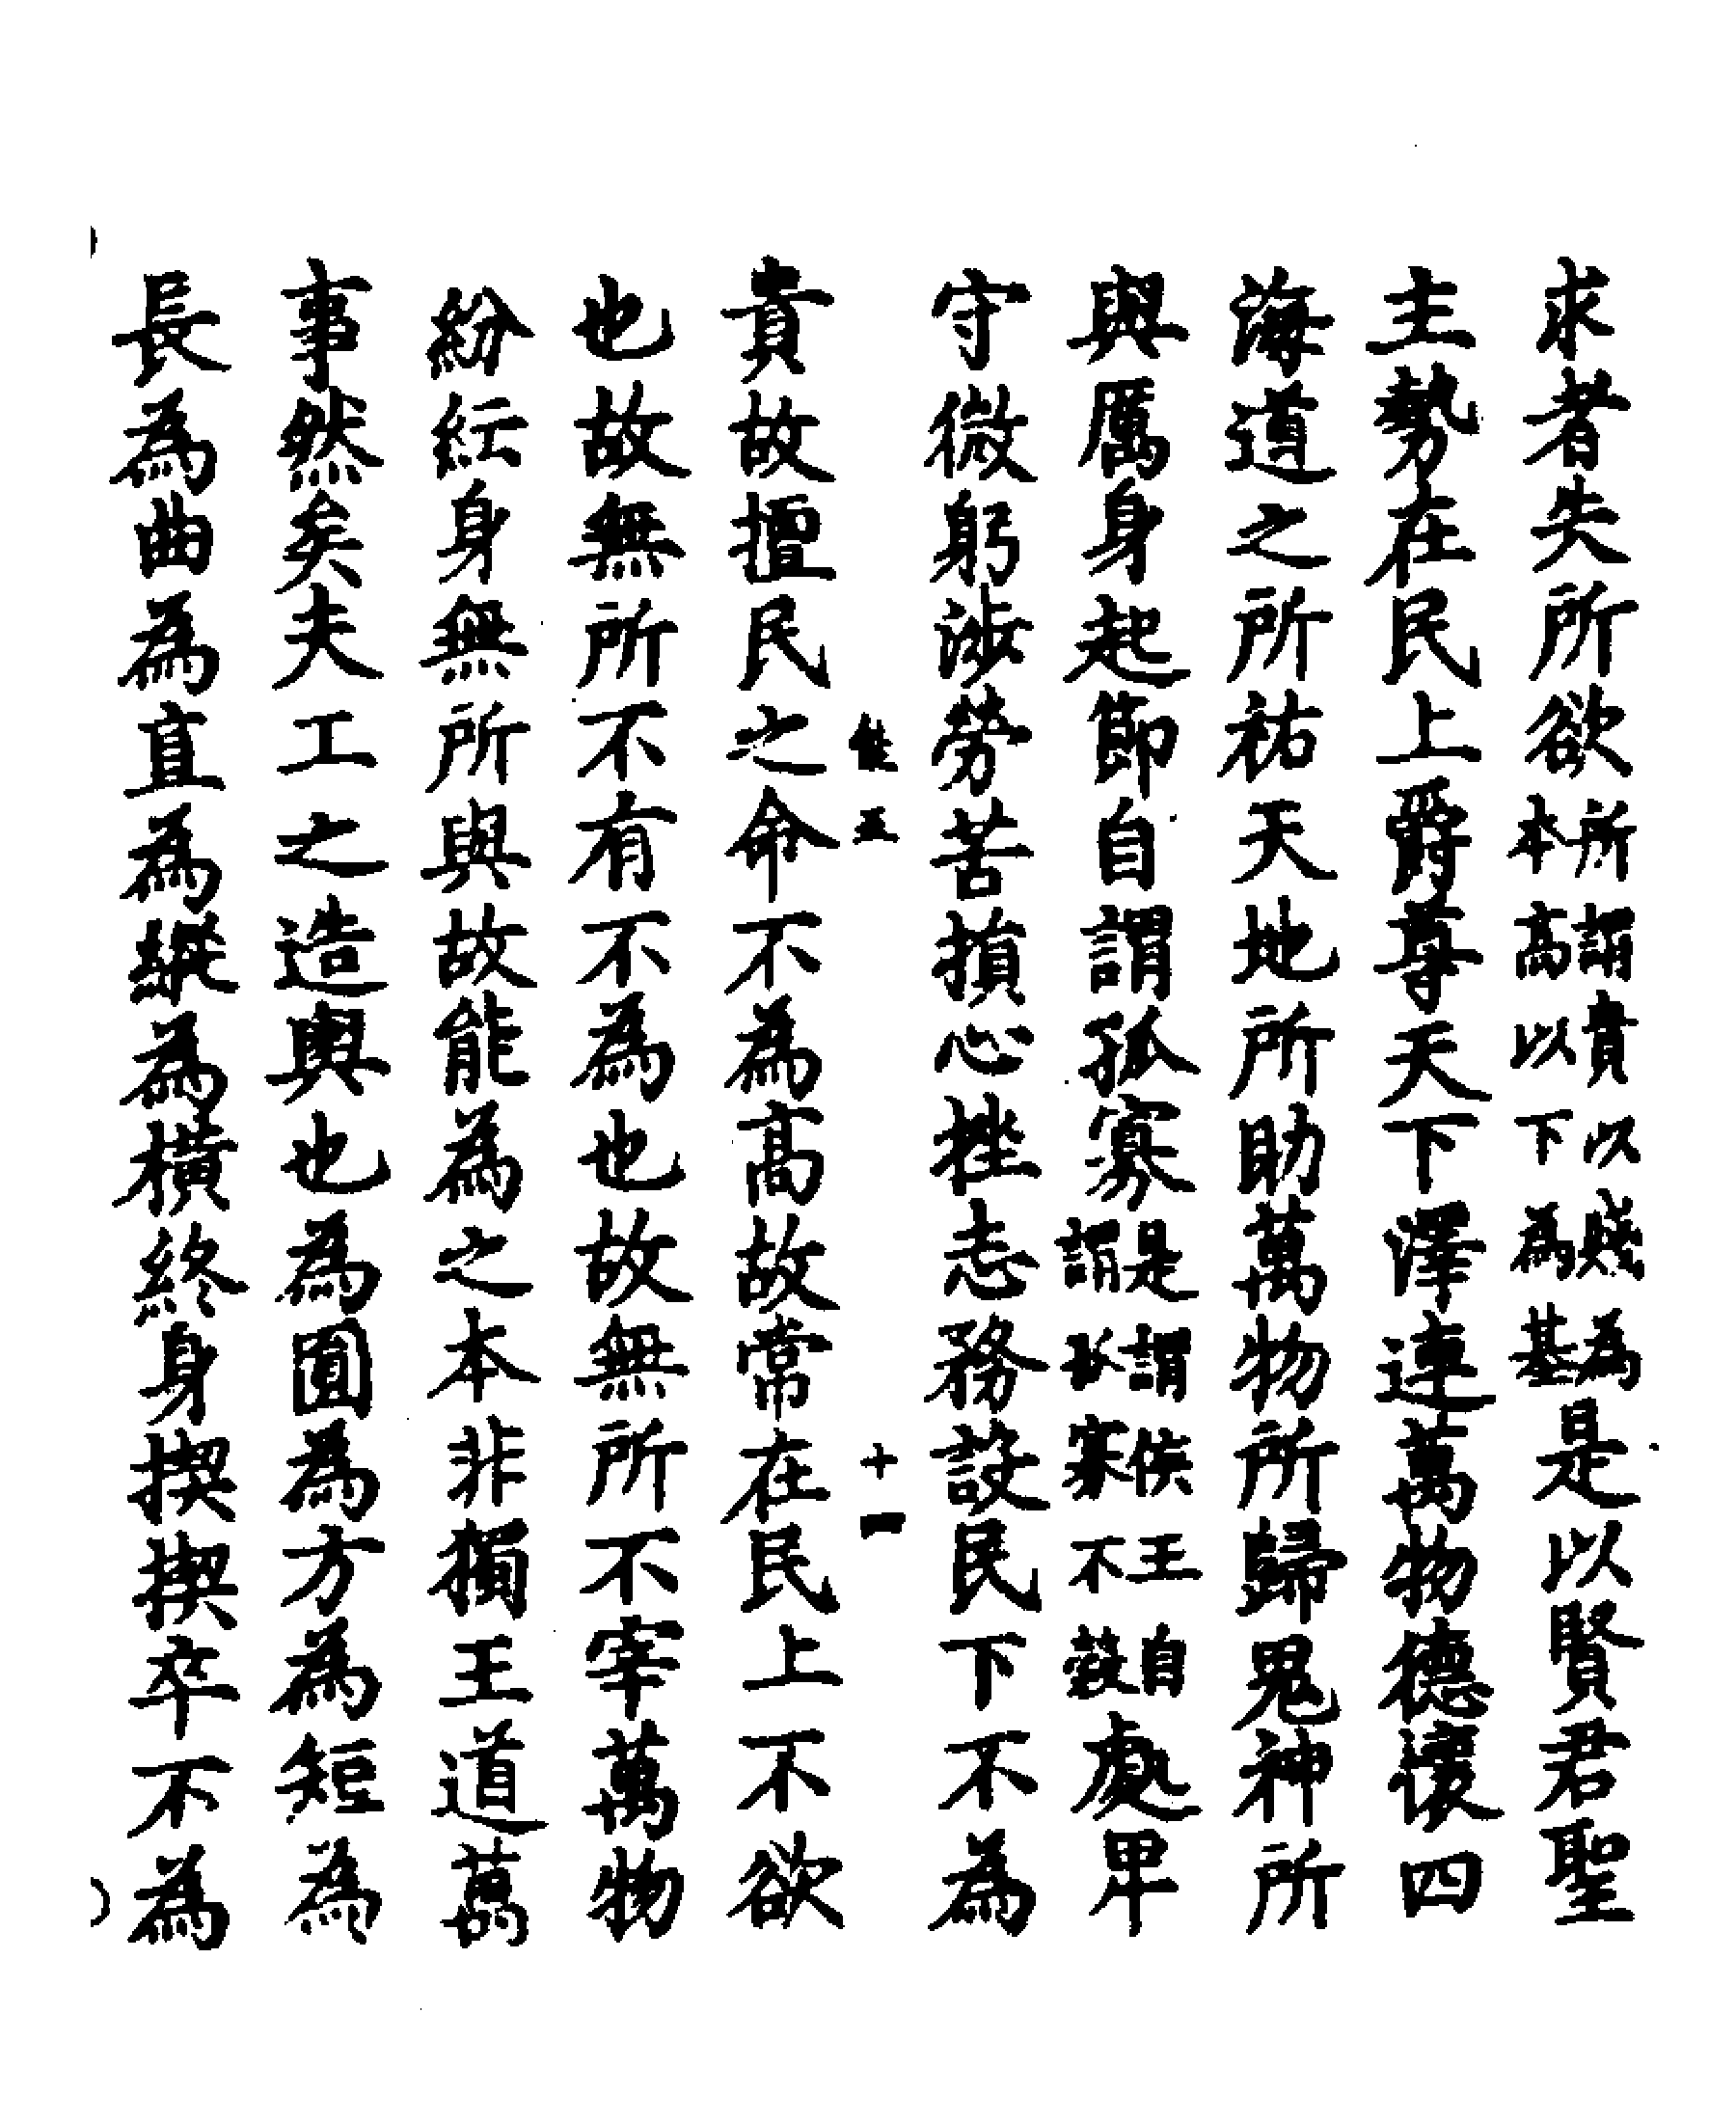 求者失所欲所謂貴以賤為本高以下為基是以賢君聖
主勢在民上爵尊天下澤連萬物德懷四
海道之所祐天地所助萬物所歸鬼神所
與厲身起節自謂孤寡是謂侯王自謂孤寡不穀處卑
守微躬涉勞苦損心挫志務設民下不為
能五
十一
貴故擅民之命不為高故常在民上不欲
也故無所不有不為也故無所不宰萬物
紛紜身無所與故能為之本非獨王道萬
事然矣夫工之造輿也為圓為方為短為
長為曲為直為縱為橫終身揳揳卒不為